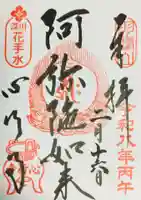 奉拝
二月十六日
令和八年丙午
阿弥陀如来
深川
花手水
心行寺